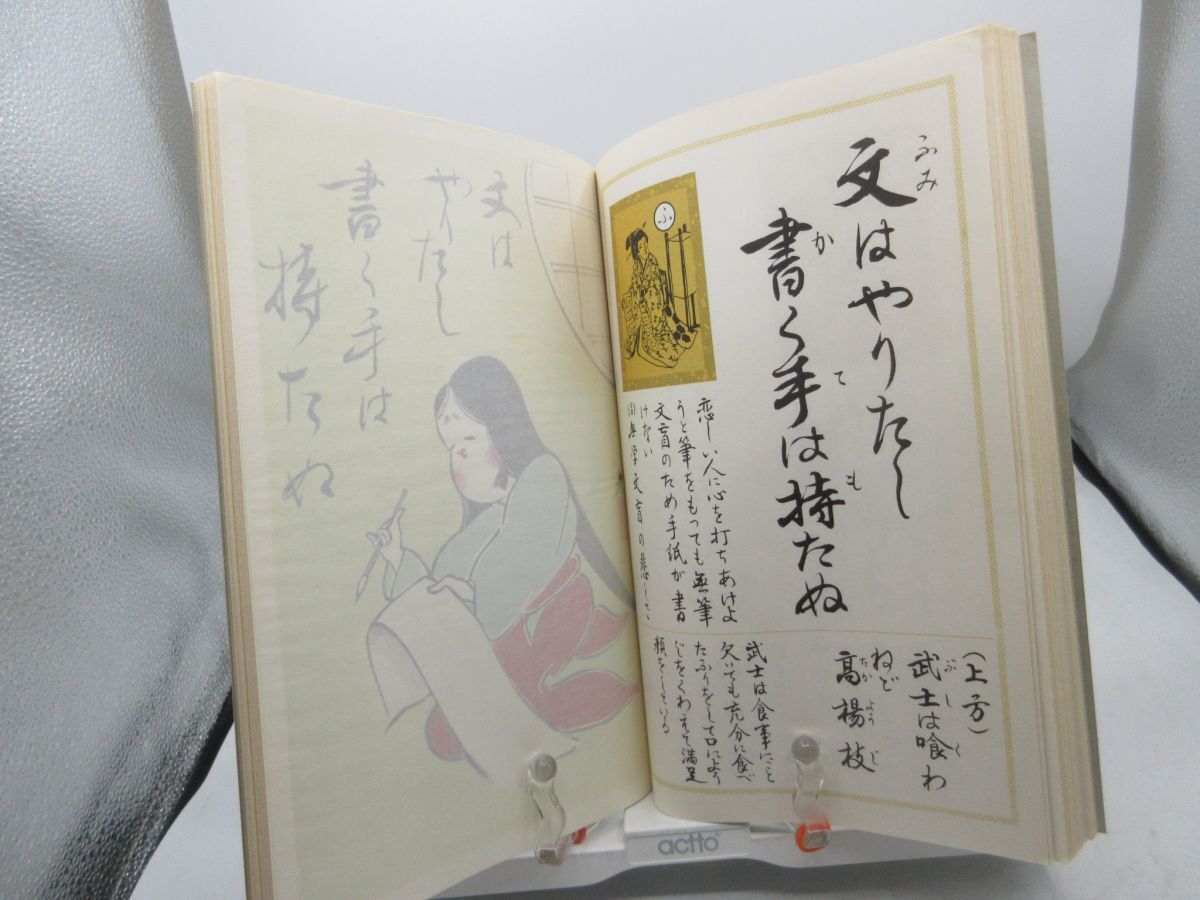 文はやりたし
ふみ
書く手は持たぬ
か
て
も
ふ
恋しい人に心を打ちあけよ
うと筆をもっても無筆
文盲のため手紙が書
けない
無学文盲の悲しさ
(上方)
武士は喰わ
ぶし
く
ねど
高楊枝
たか
ようじ
武士は食事にこと
欠いても充分に食べ
たふりをして口によう
じをくわえて満足
顔をしている
文は
やりたし
書く手は
持たぬ
actto